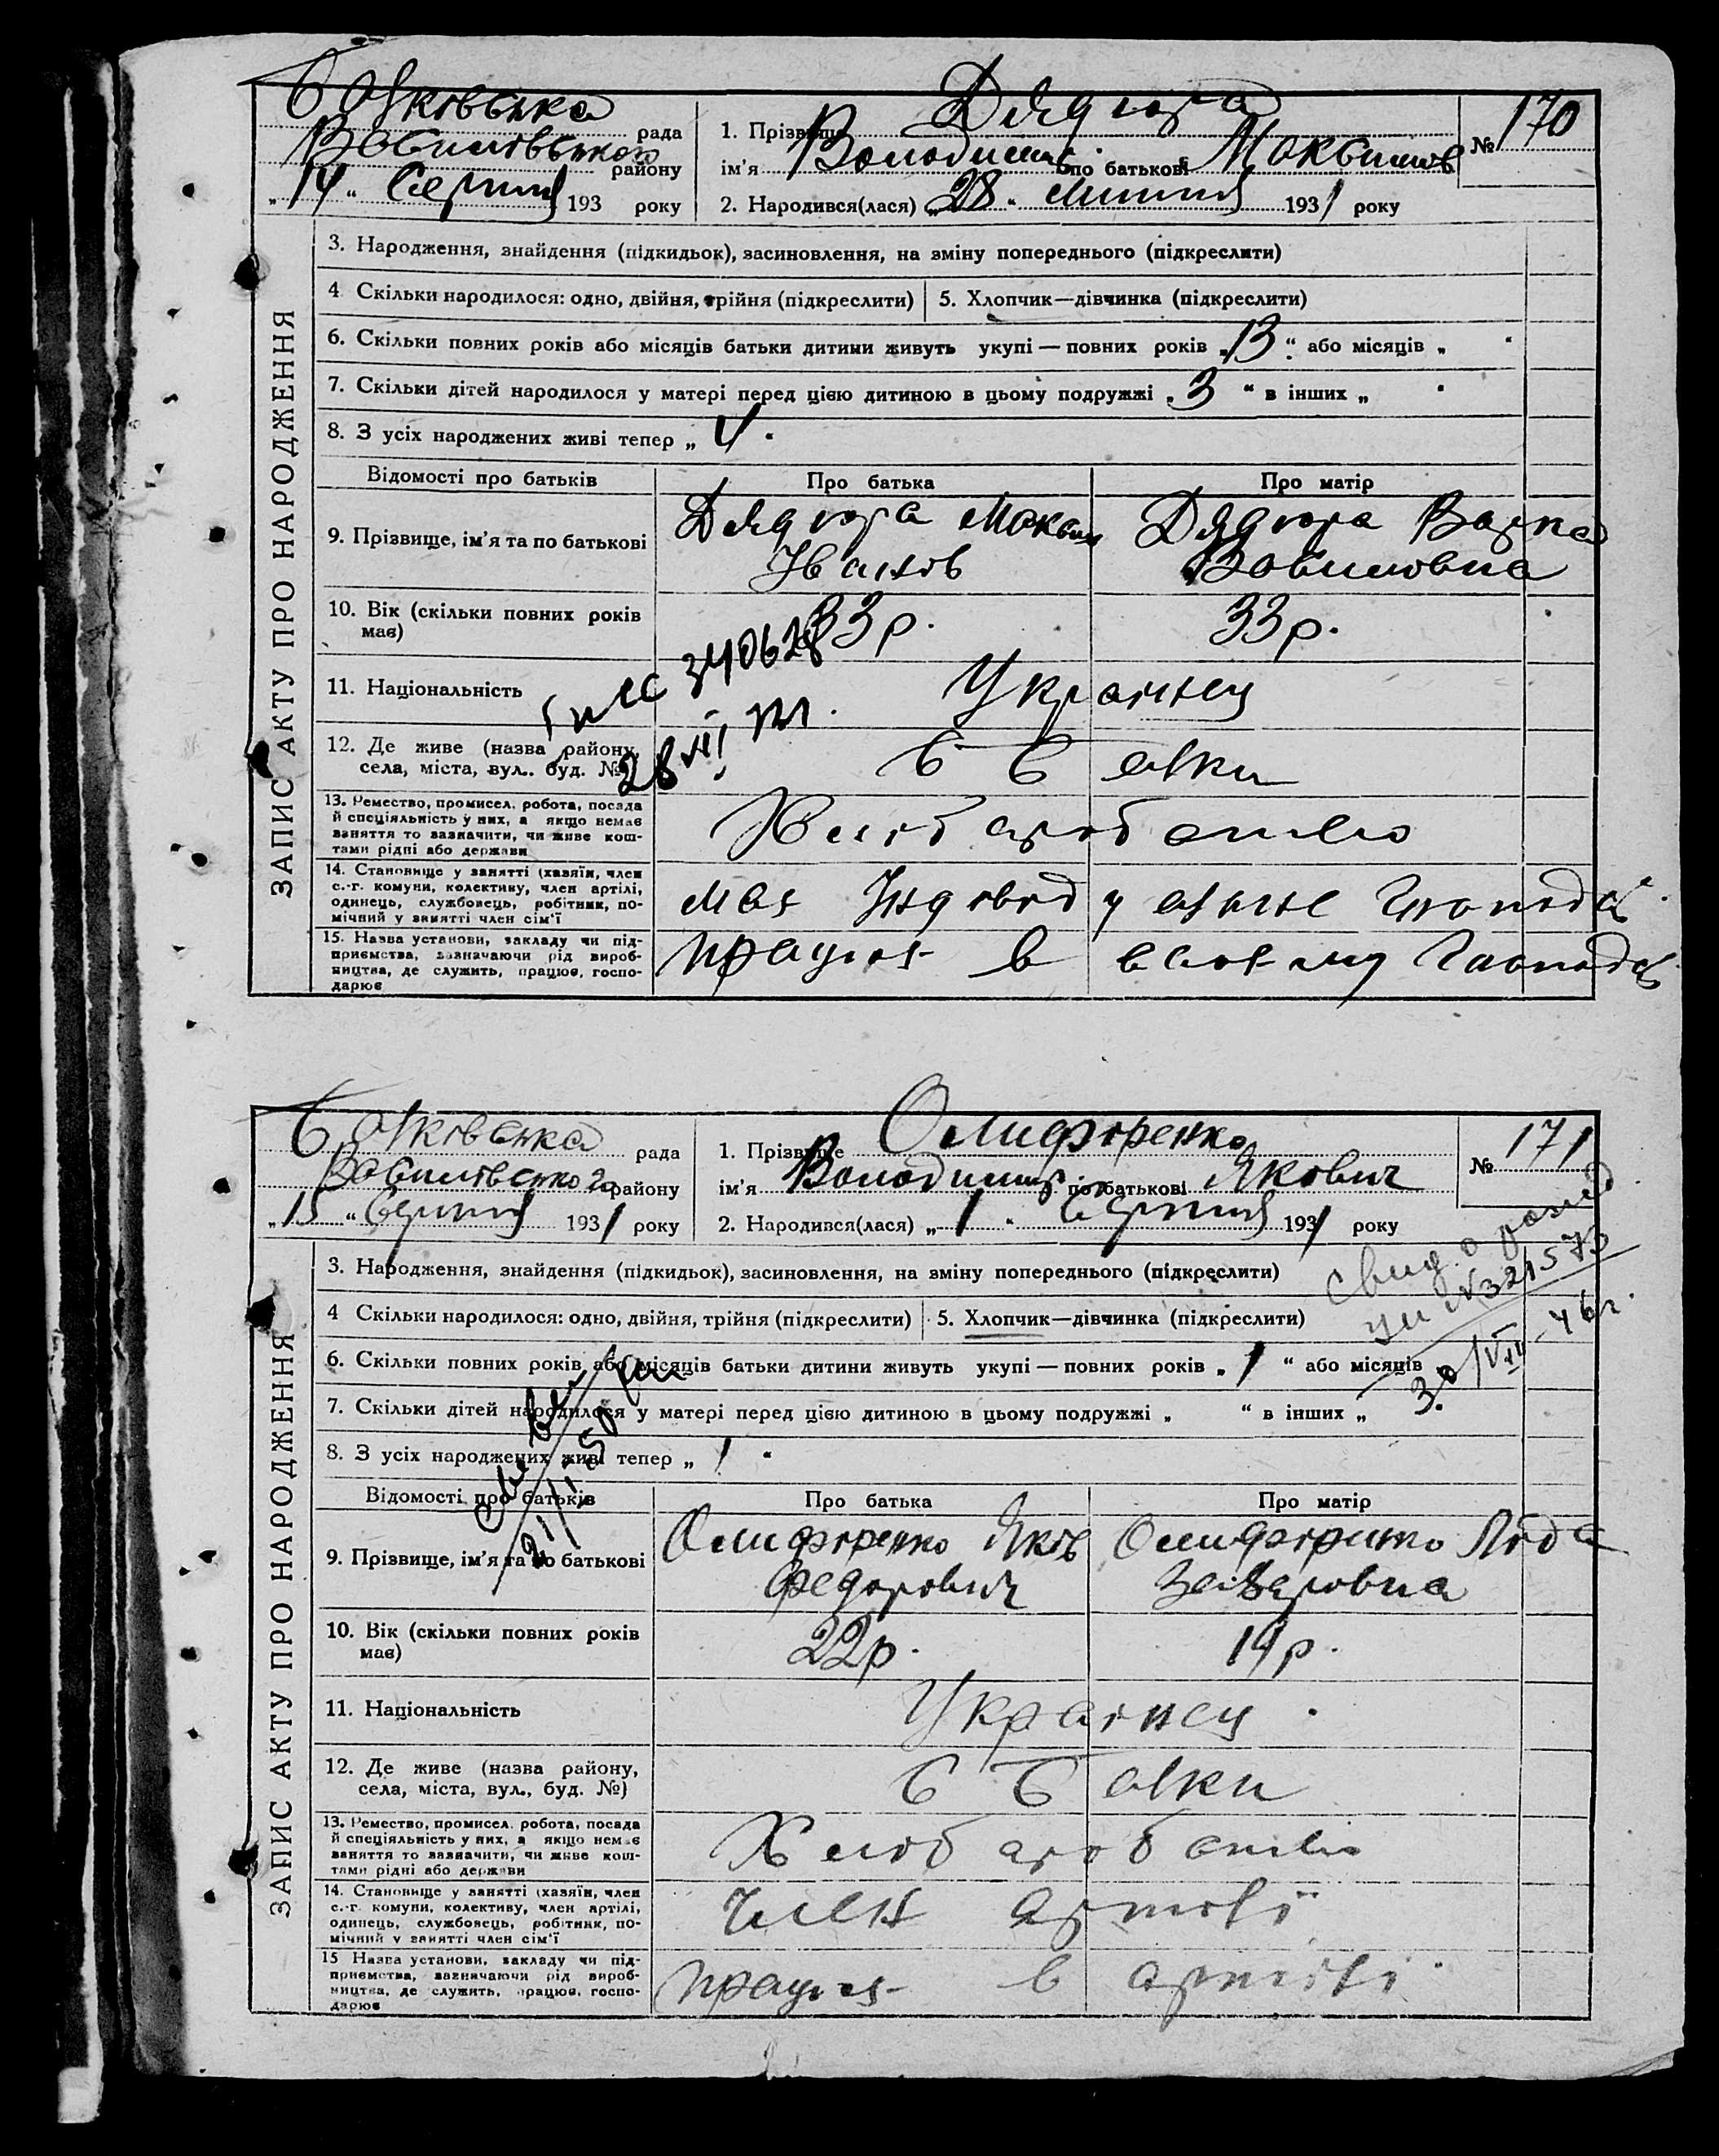 Балківська рада
Василівського району
„14“ Серпня 193 року
1. Прізвище Дядюра
ім'я Володимир по батькові Максимов
2. Народився(лася) „28“ Липня 1931 року
№ 170
ЗАПИС АКТУ ПРО НАРОДЖЕННЯ
3. Народження, знайдення (підкидьок), засиновлення, на зміну попереднього (підкреслити)
4 Скільки народилося: одно, двійня, трійня (підкреслити) 5. Хлопчик—дівчинка (підкреслити)
6. Скільки повних років або місяців батьки дитини живуть укупі — повних років „13“ або місяців „ “
7. Скільки дітей народилося у матері перед цією дитиною в цьому подружжі „3“ в інших „ “
8. З усіх народжених живі тепер „4“
Відомості про батьків Про батька Про матір
9. Прізвище, ім'я та по батькові Дядюра Максим Іванов Дядюра Варка
Вавиловна
10. Вік (скільки повних років має) 33 р. 33 р.
340628
28
11. Національність Українец
12. Де живе (назва району, села, міста, вул., буд. №) С Балки
13. Ремество, промисел, робота, посада
й спеціяльність у них, а якщо немає
заняття то зазначити, чи живе кош-
тами рідні або держави
Хліборобство
14. Становище у занятті (хазяїн, член
с.-г. комуни, колективу, член артілі,
одинець, службовець, робітник, по-
мічний у занятті член сім'ї
Має Індивідуальне Господар
15. Назва установи, закладу чи під-
приємства, зазначаючи рід вироб-
ництва, де служить, працює, госпо-
дарює
працює в власному Господар
Балківська рада
Василівського району
„15“ Серпня 1931 року
1. Прізвище Олифіренко
ім'я Володимир по батькові Якович
2. Народився(лася) „1“ Серпня 1931 року
№ 171
Свид. о рожд
№321573
30/VIII-46г.
ЗАПИС АКТУ ПРО НАРОДЖЕННЯ
3. Народження, знайдення (підкидьок), засиновлення, на зміну попереднього (підкреслити)
4 Скільки народилося: одно, двійня, трійня (підкреслити) 5. Хлопчик—дівчинка (підкреслити)
6. Скільки повних років або місяців батьки дитини живуть укупі — повних років „1“ або місяців
7. Скільки дітей народилося у матері перед цією дитиною в цьому подружжі „ “ в інших „ “
8. З усіх народжених живі тепер „1“
Відомості про батьків Про батька Про матір
9. Прізвище, ім'я та по батькові Олифіренко Яків Олифіренко Ліда
Федорович Захаровна
10. Вік (скільки повних років має) 22 р. 19 р.
11. Національність Українец
12. Де живе (назва району, села, міста, вул., буд. №) С Балки
13. Ремество, промисел, робота, посада
й спеціяльність у них, а якщо немає
заняття то зазначити, чи живе кош-
тами рідні або держави
Хліборобство
14. Становище у занятті (хазяїн, член
с.-г. комуни, колективу, член артілі,
одинець, службовець, робітник, по-
мічний у занятті член сім'ї
Член Артілі
15 Назва установи, закладу чи під-
приємства, зазначаючи рід вироб-
ництва, де служить, працює, госпо-
дарює
працює в артілі